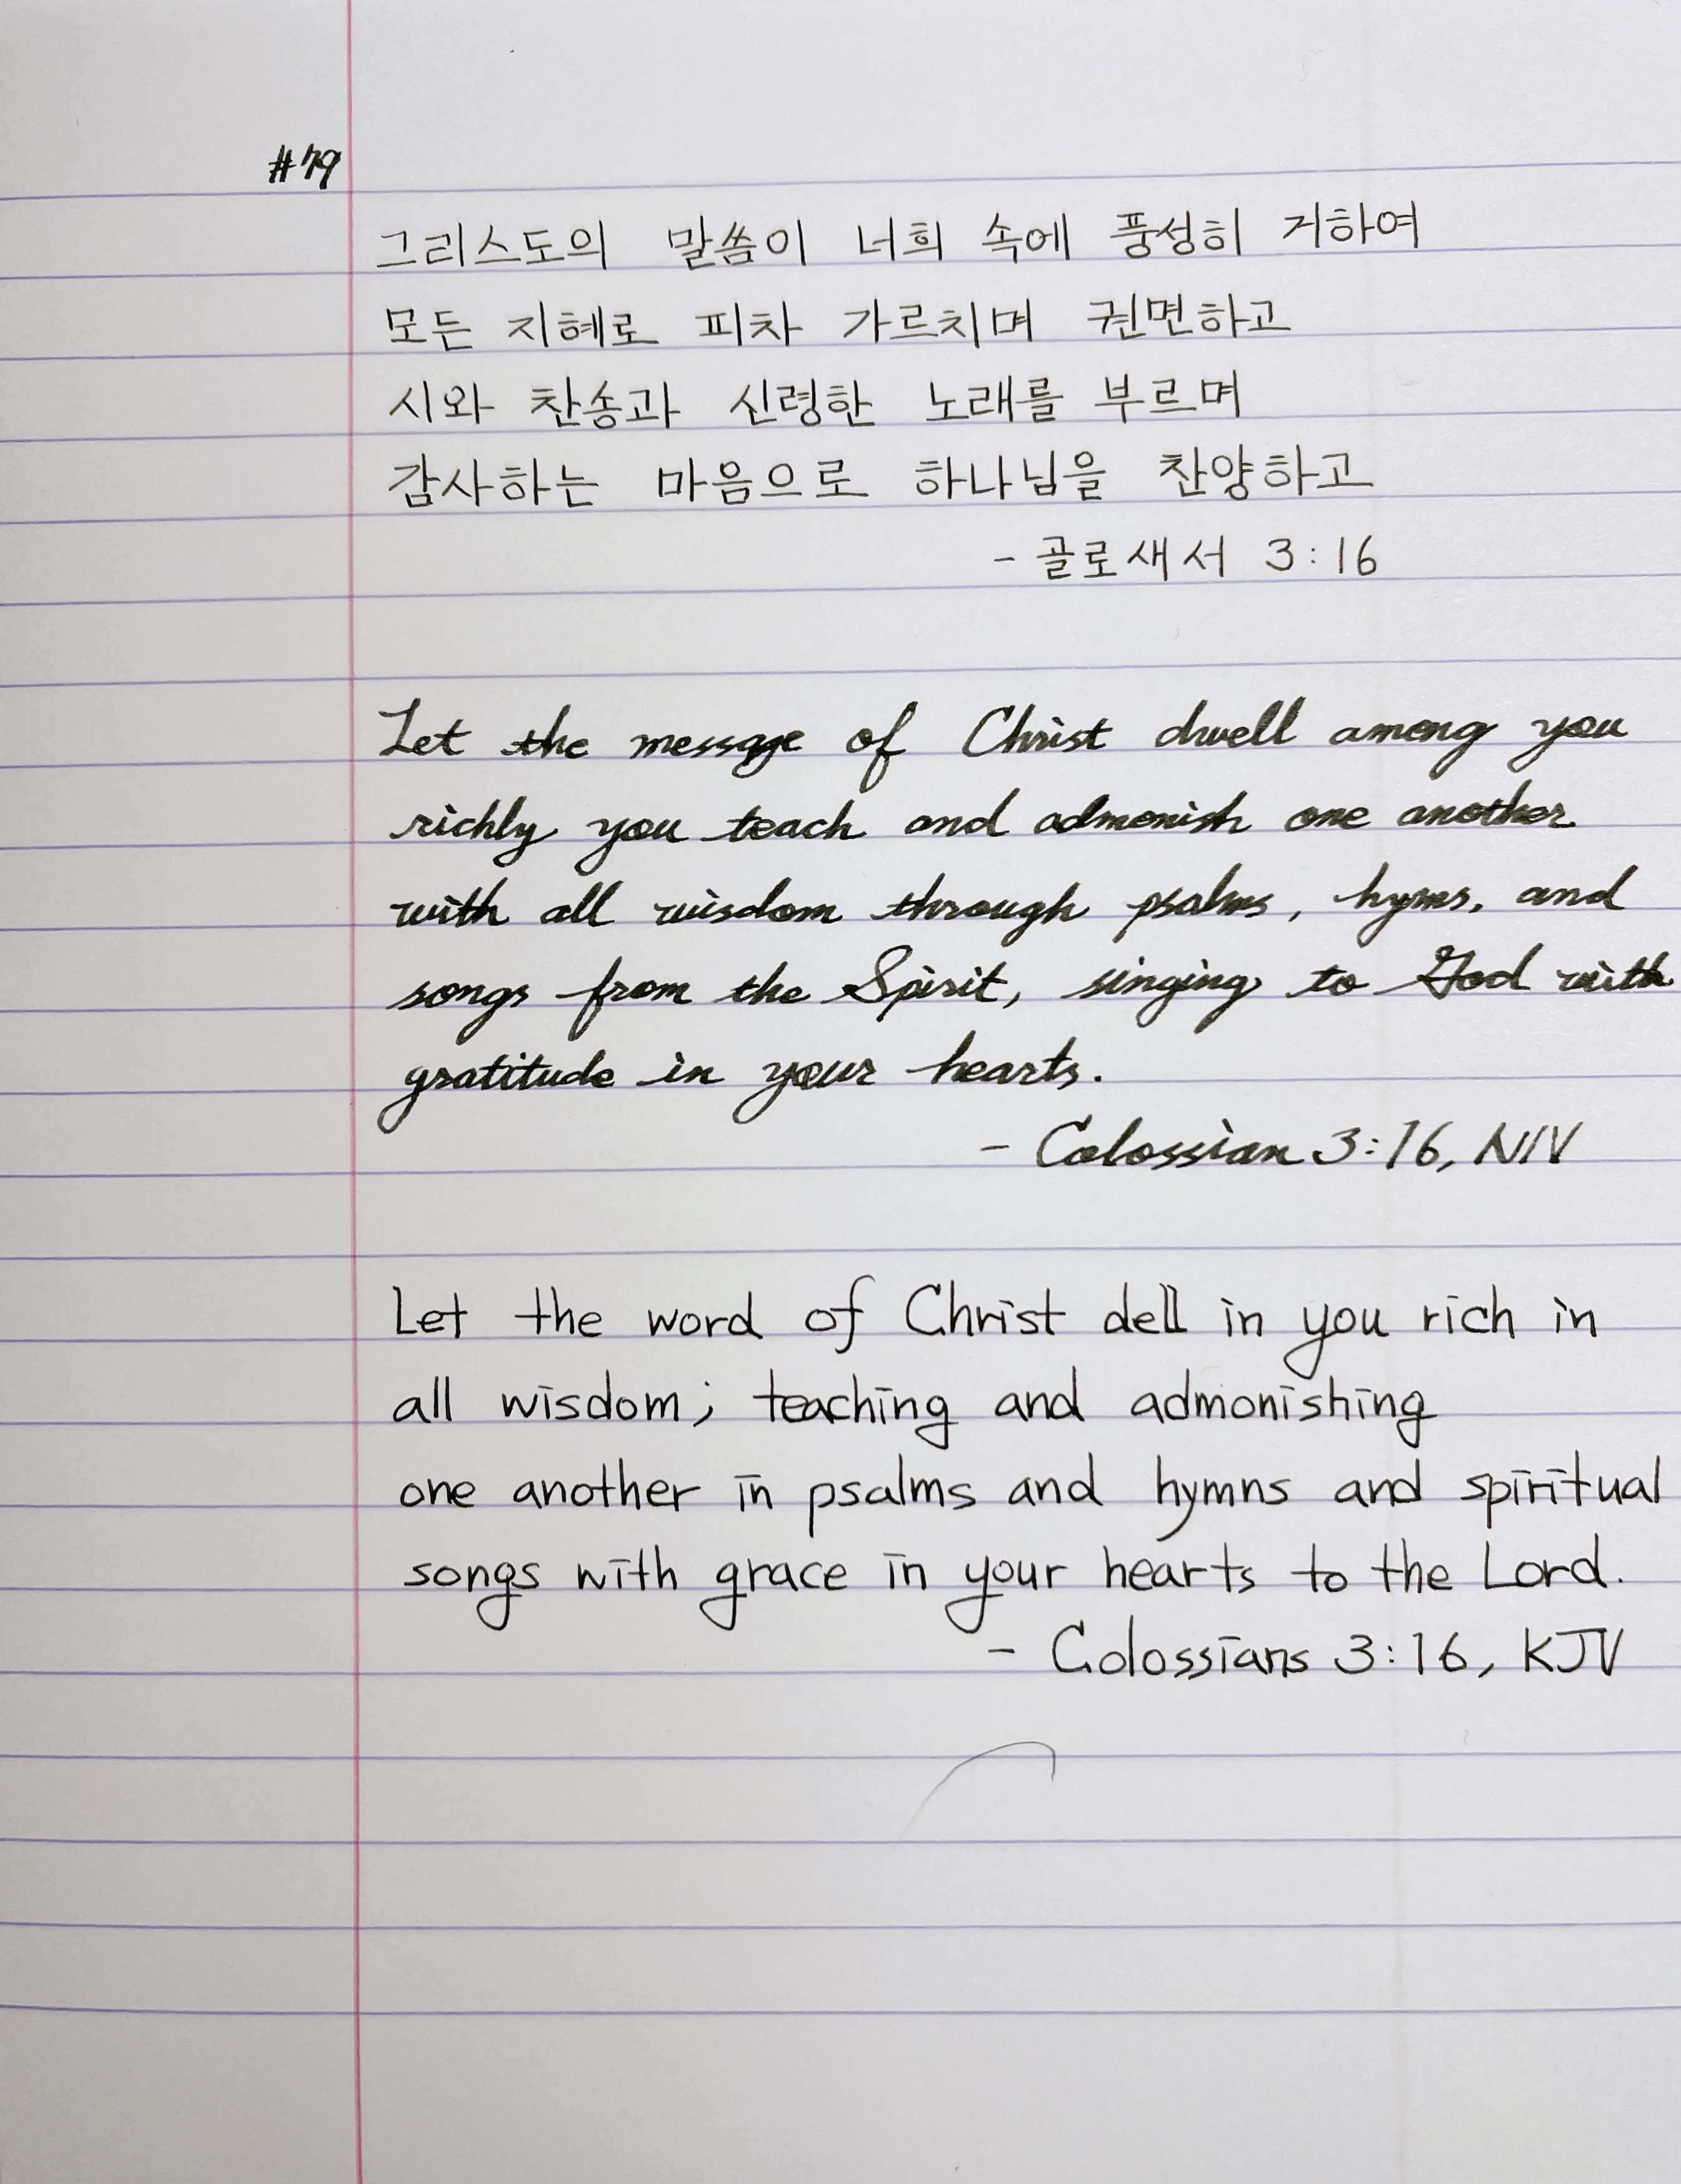 #79
그리스도의 말씀이 너희 속에 풍성히 거하여
모든 지혜로 피차 가르치며 권면하고
시와 찬송과 신령한 노래를 부르며
감사하는 마음으로 하나님을 찬양하고
- 골로새서 3:16
Let the message of Christ dwell among you
richly you teach and admonish one another
with all wisdom through psalms, hyms, and
songs from the Spirit, singing to God with
gratitude in your hearts.
- Colossian 3:16, NIV
Let the word of Christ dell in you rich in
all wisdom; teaching and admonishing
one another in psalms and hymns and spiritual
songs with grace in your hearts to the Lord.
- Colossians 3:16, KJV